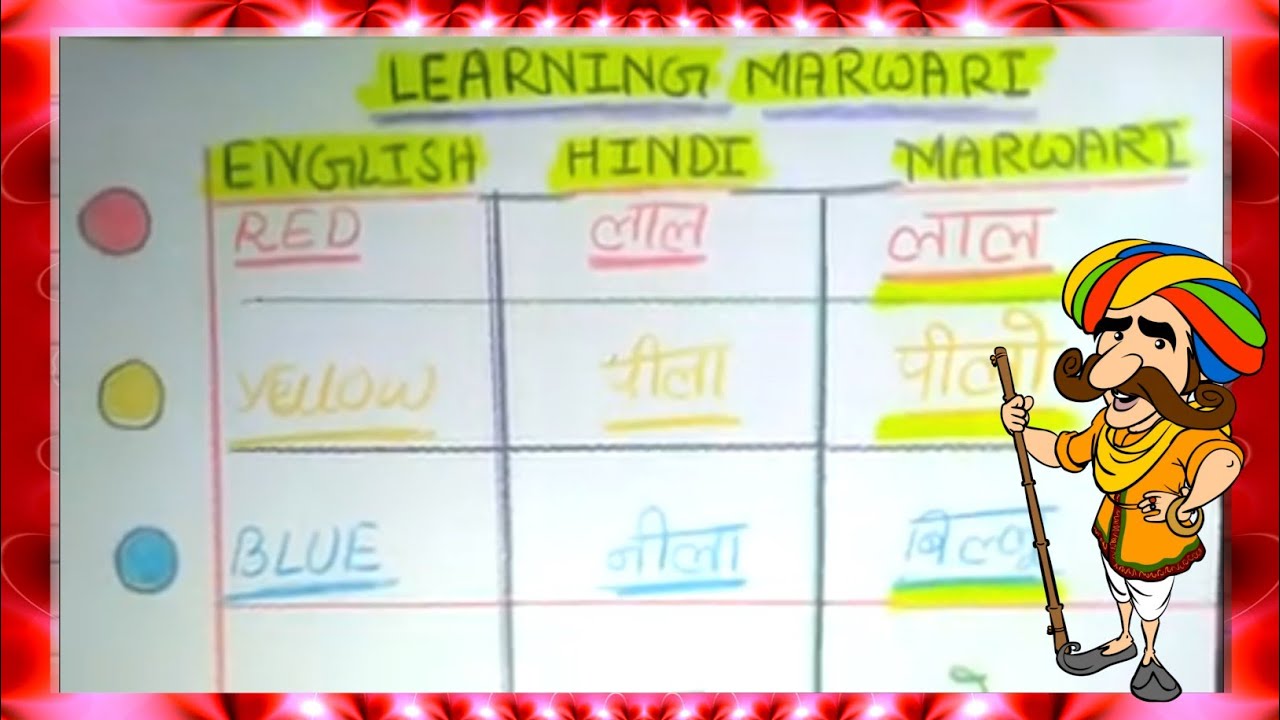 LEARNING MARWARI
ENGLISH HINDI MARWARI
RED लाल लाल
YELLOW पीला पीलो
BLUE नीला